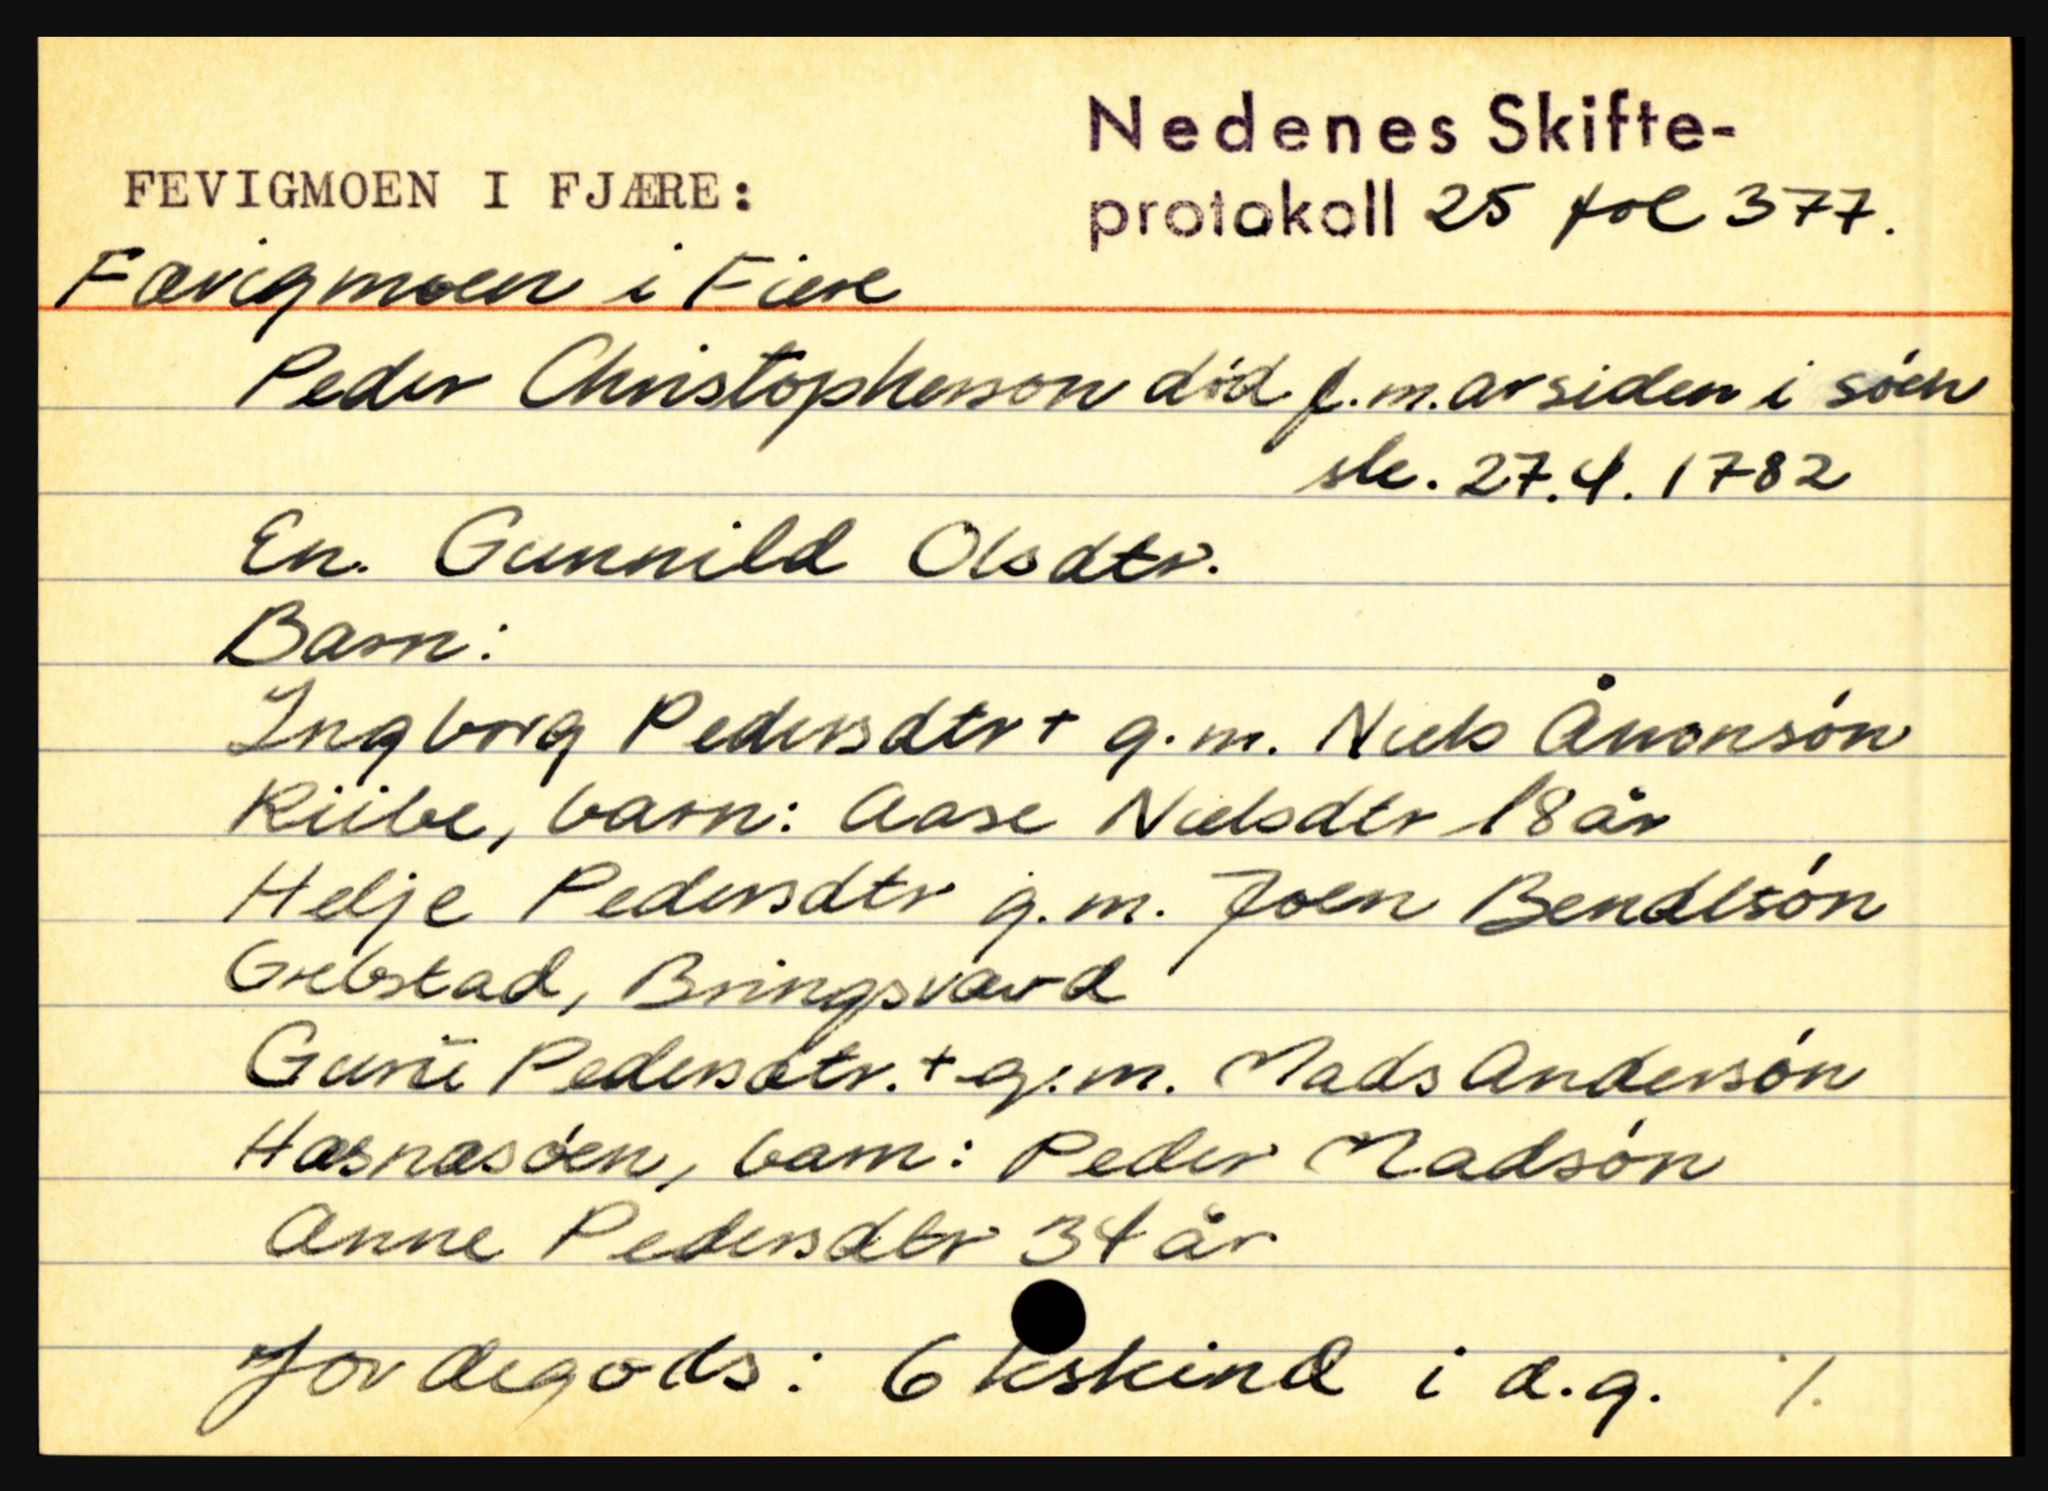 Nedenes Skifte-
FEVIGMOEN I FJÆRE:
protokoll 25 fol 377.
Fævigmoen i Fiere
Peder Christophersson död f.m. arsiden i söen
sk. 27.4. 1782
En. Gunnild Olsdtr.
Barn:
Ingborg Pedersdtr + g.m. Niels Ånonsön
Riibe, barn: Aase Nielsdtr 18 år
Helje Pedersdtr g.m. Joen Bendtsön
Grebstad, Bringsværd
Guni Pedersdtr. + g.m. Mads Andersön
Hasnæsöen, barn: Peder Madsön
Anne Pedersdtr 34 år
Jordegods: 6 kskind i d.g. %